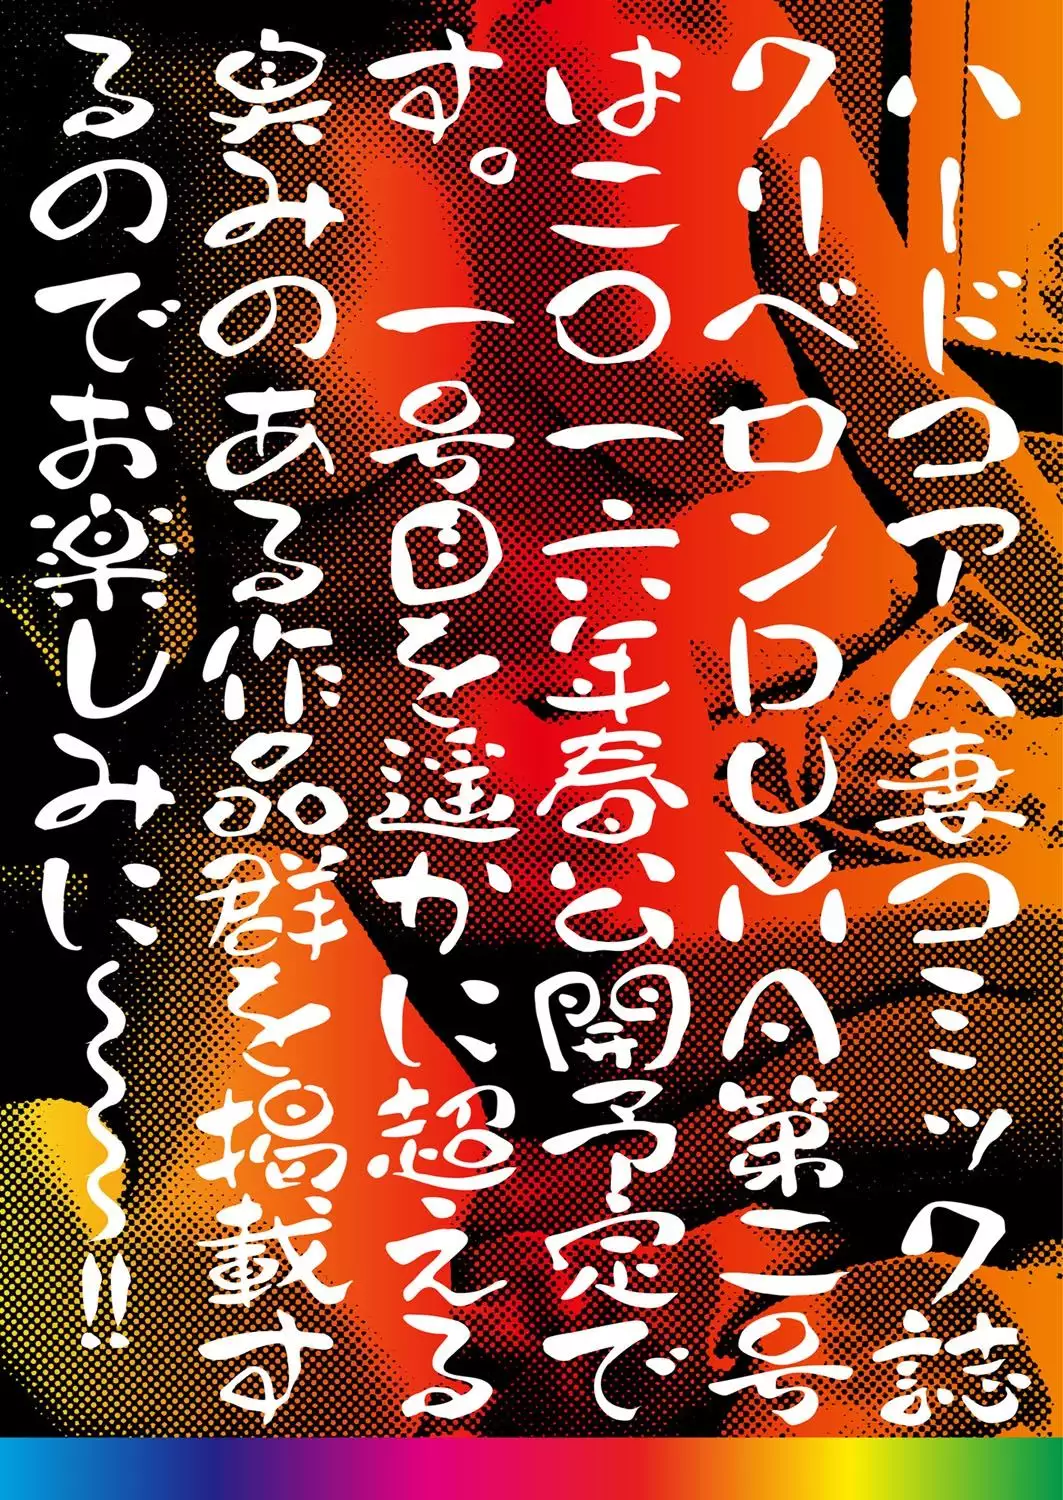 ハードコア人妻コミック誌
クリベロンDUMA第二号
は二〇一六年春公開予定で
す。一号目を遥かに超える
臭みのある作品群を掲載す
るのでお楽しみに〜〜〜!!